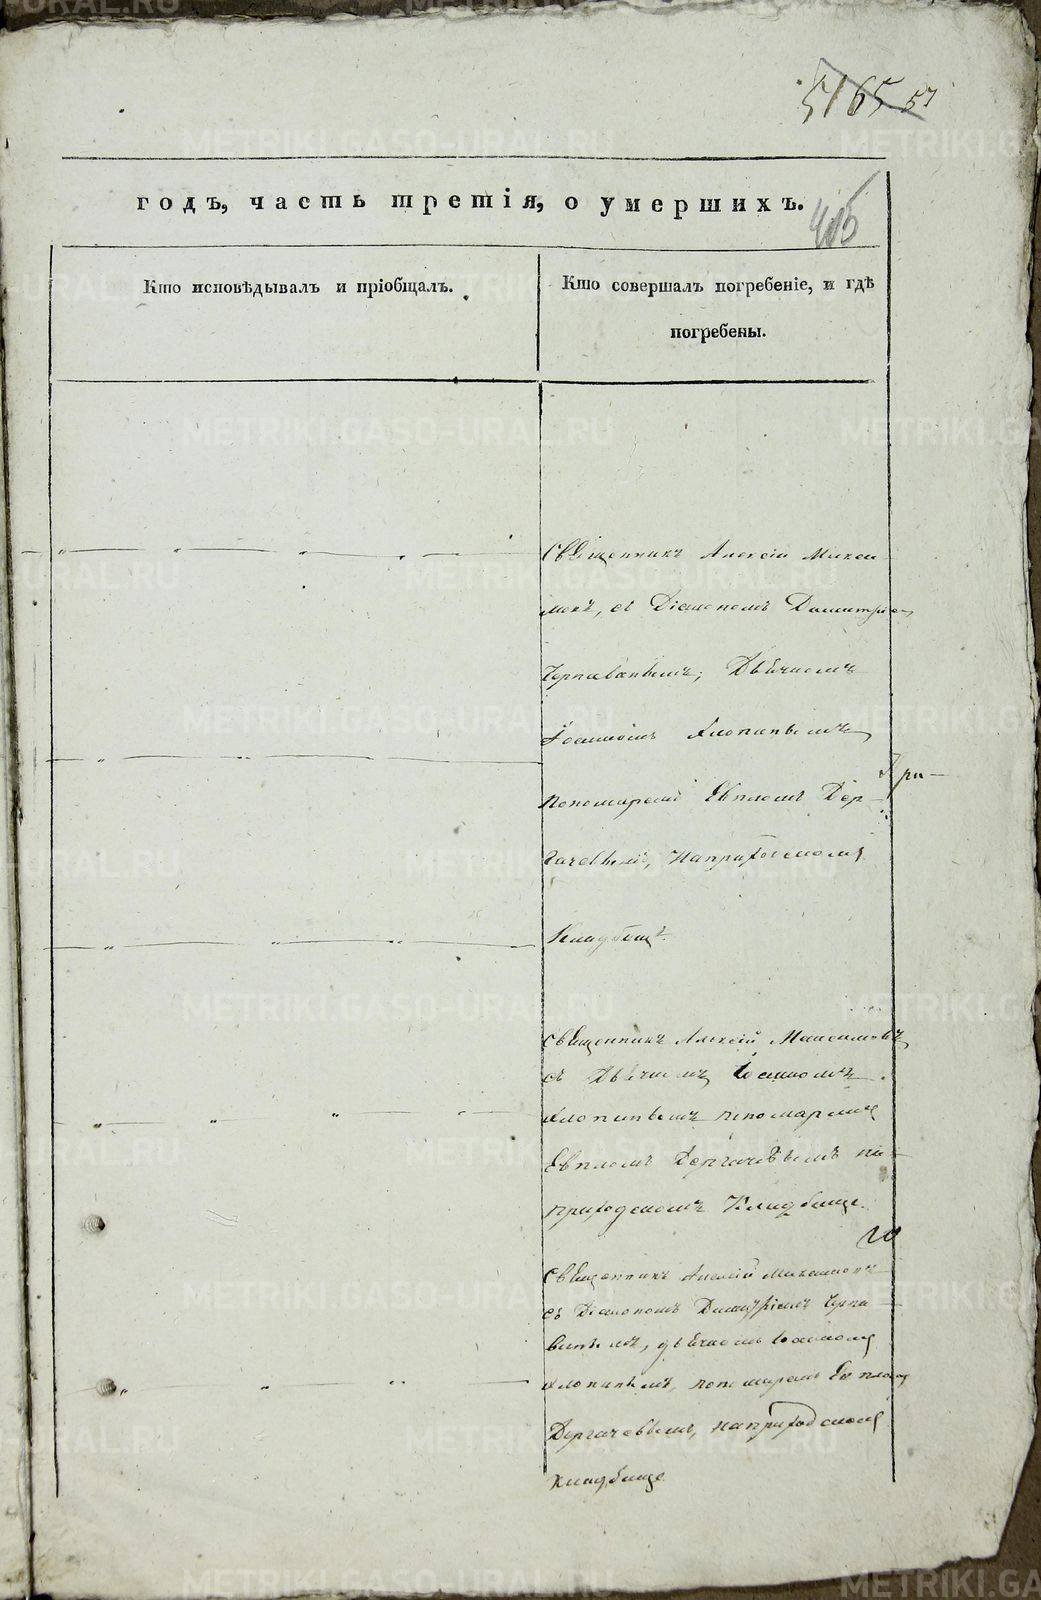 5165 57
годъ, часть третія, о умершихъ.
405
Кто исповѣдывалъ и пріобщалъ.
Кто совершалъ погребеніе, и гдѣ
погребены.
Священникъ Алексій Макси
мовъ, съ Діакономъ Димитріем
Дьячкомъ
Іоанномъ Хлопинымъ
При
пономаремъ Евпломъ Дер-
гачевымъ, на приходскомъ
Кладбищѣ.
Священникъ Алексій Максимовъ
съ Дьячкомъ Іоанномъ
Хлопинымъ пономаремъ
Евпломъ Дергачевымъ на
приходскомъ Кладбище.
Священникъ Алексій Максимовъ
съ Діакономъ Димитріемъ
дьячкомъ Іоанномъ
Хлопинымъ, пономаремъ Евпломъ
Дергачевымъ, на приходскомъ
кладбище
METRIKI.GASO-URAL.RU